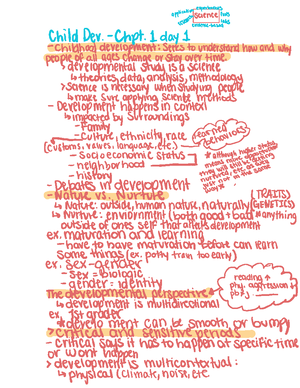 Child Dev. - Chpt. 1 day 1
science
- Childhood development: seeks to understand how and why
people of all ages change or stay over time.
↳ developmental study is a science
↳ theories, data, analysis, methodology
> Science is necessary when studying people
↳ make sure applying scientific methods
- Development happens in context
↳ impacted by surroundings
- Family
- culture, ethnicity, race
(customs, values, language, etc.)
learned behaviors
- socioeconomic status
- neighborhood
- history
* although higher status
- Debates in development
- Nature vs. Nurture
(TRAITS)
↳ Nature: outside, human nature, naturally (GENETICS)
↳ Nurture: environment (both good + bad) * anything
outside of ones self that affects development
ex. maturation and learning
- have to have maturation before can learn
some things (ex. potty train too early)
ex. sex-gender
- sex = biologic
- gender = identity
reading ↑
phy. aggression ↓
The developmental perspective*
↳ development is multidirectional
ex. 1st grader
* development can be smooth or bumpy
> critical and sensitive periods
- critical says it has to happen at specific time
or wont happen
> development is multicontextual:
↳ physical (climate, noise, etc.